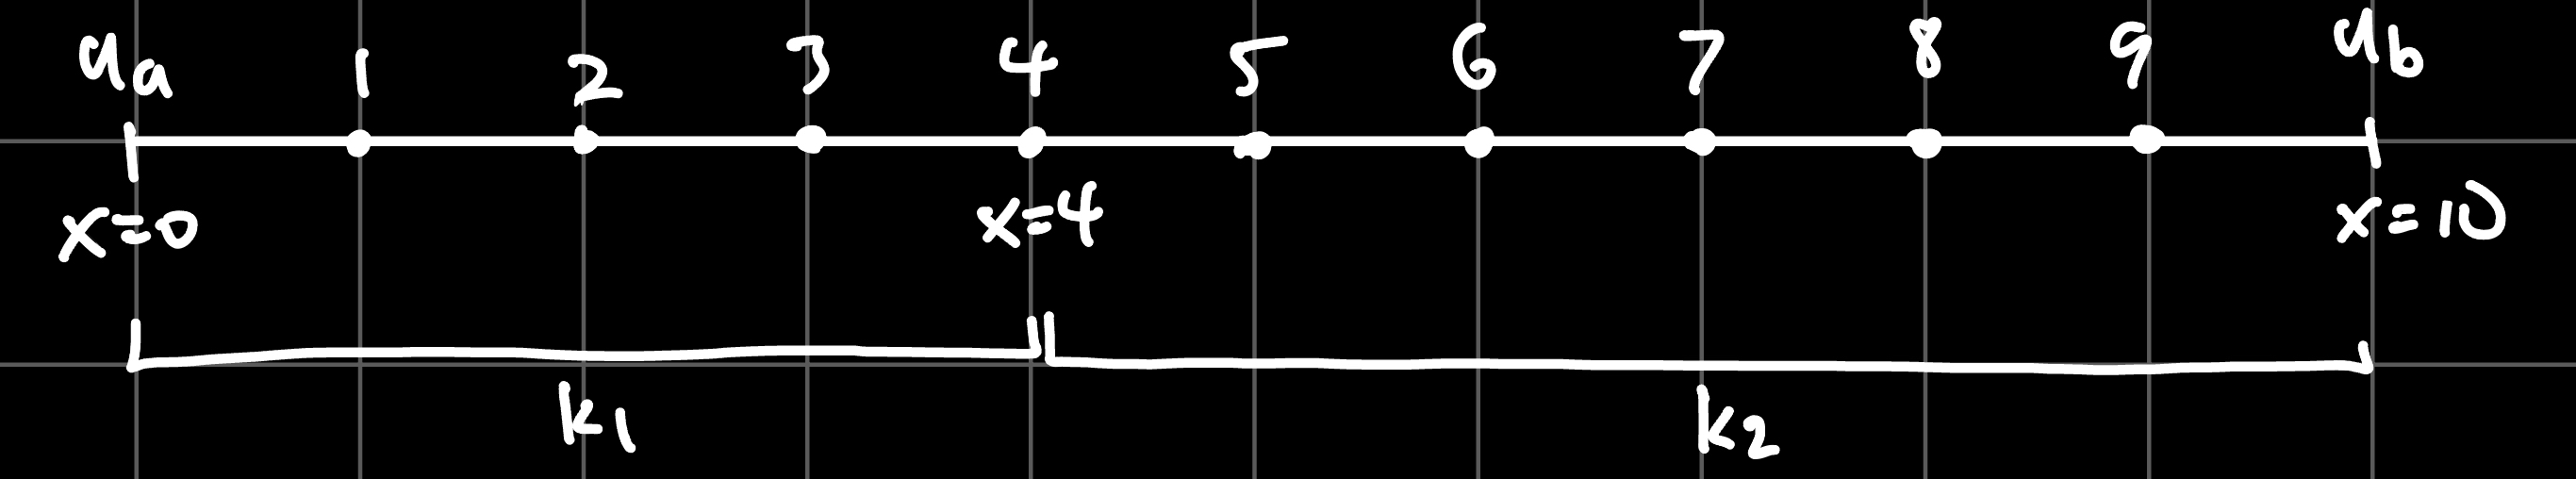 u_a 1 2 3 4 5 6 7 8 9 u_b
x=0 x=4 x=10
k_1 k_2